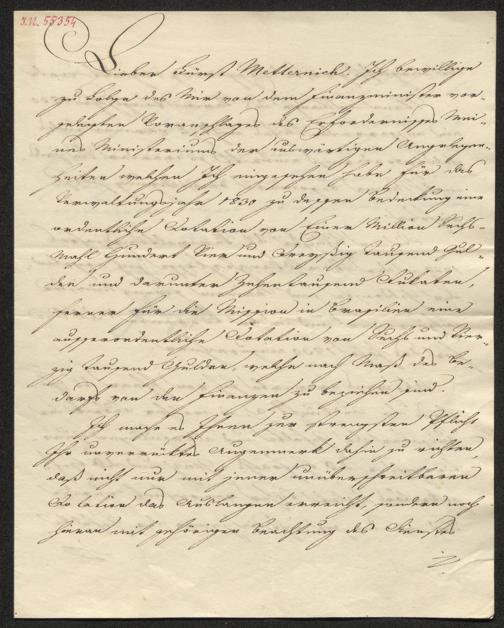 J.N. 55354
Lieber Fürst Metternich. Ich bewillige
zu Folge des Mir von dem Finanzminister vor-
gelegten Voranschlages des Erfordernisses Mei-
nes Ministeriums der auswärtigen Angelegen-
heiten welchen Ich eingesehen habe für das
Verwaltungsjahr 1830 zu dessen Bedeckung eine
ordentliche Dotation von Einer Million Sechs-
Mahl Hundert Vier und Dreyßig tausend Gul-
den und darunter Zehentausend Dukaten,
ferner für die Mission in Brasilien eine
ausserordentliche Dotation von Sechs und Vier-
zig tausend Gulden, welche nach Maß des Be-
darfs von den Finanzen zu beziehen sind.
Ich mache es Ihnen zur strengsten Pflicht
Ihr unverrücktes Augenmerk dahin zu richten,
daß nicht nur mit jener unüberschreitbaren
Dotation das Auslangen erreicht, sondern noch
hieran mit gehöriger Beachtung des Dienstes